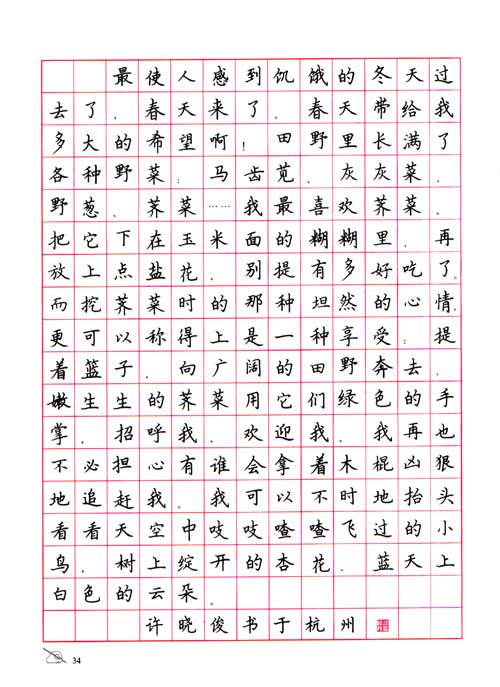 最使人感到饥饿的冬天过
去了.春天来了.春天带给我
多大的希望啊!田野里长满了
各种野菜:马齿苋.灰灰菜.
野葱.荠菜……我最喜欢荠菜.
把它下在玉米面的糊糊里.再
放上点盐花.别提有多好吃了。
而挖荠菜时的那种坦然的心情.
更可以称得上是一种享受:提
着篮子.向广阔的田野奔去.
嫩生生的荠菜用它们绿色的手
掌.招呼我.欢迎我.我再也
不必担心有谁会拿着木棍凶狠
地追赶我.我可以不时地抬头
看看天空中吱吱喳喳飞过的小
鸟.树上绽开的杏花.蓝天上
白色的云朵.
许晓俊书于杭州
34